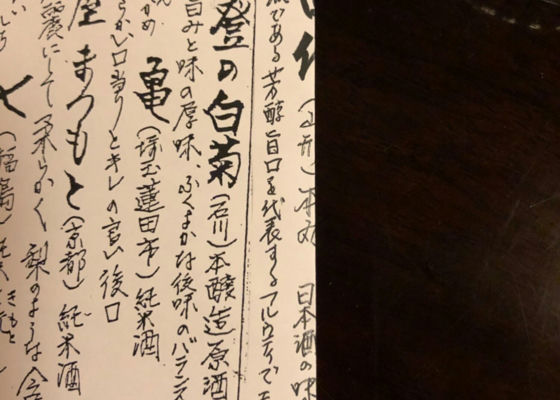 (山形) 本丸 日本酒の味
である芳醇旨口を代表するフルウティで
登の白菊 (石川) 本醸造原酒
旨みと味の厚味、ふくよかな後味のバランス
亀 (埼玉蓮田市) 純米酒
らかい口当りとキレの良い後口
まつもと (京都) 純米酒
にして柔らかく 梨のような
(福島)